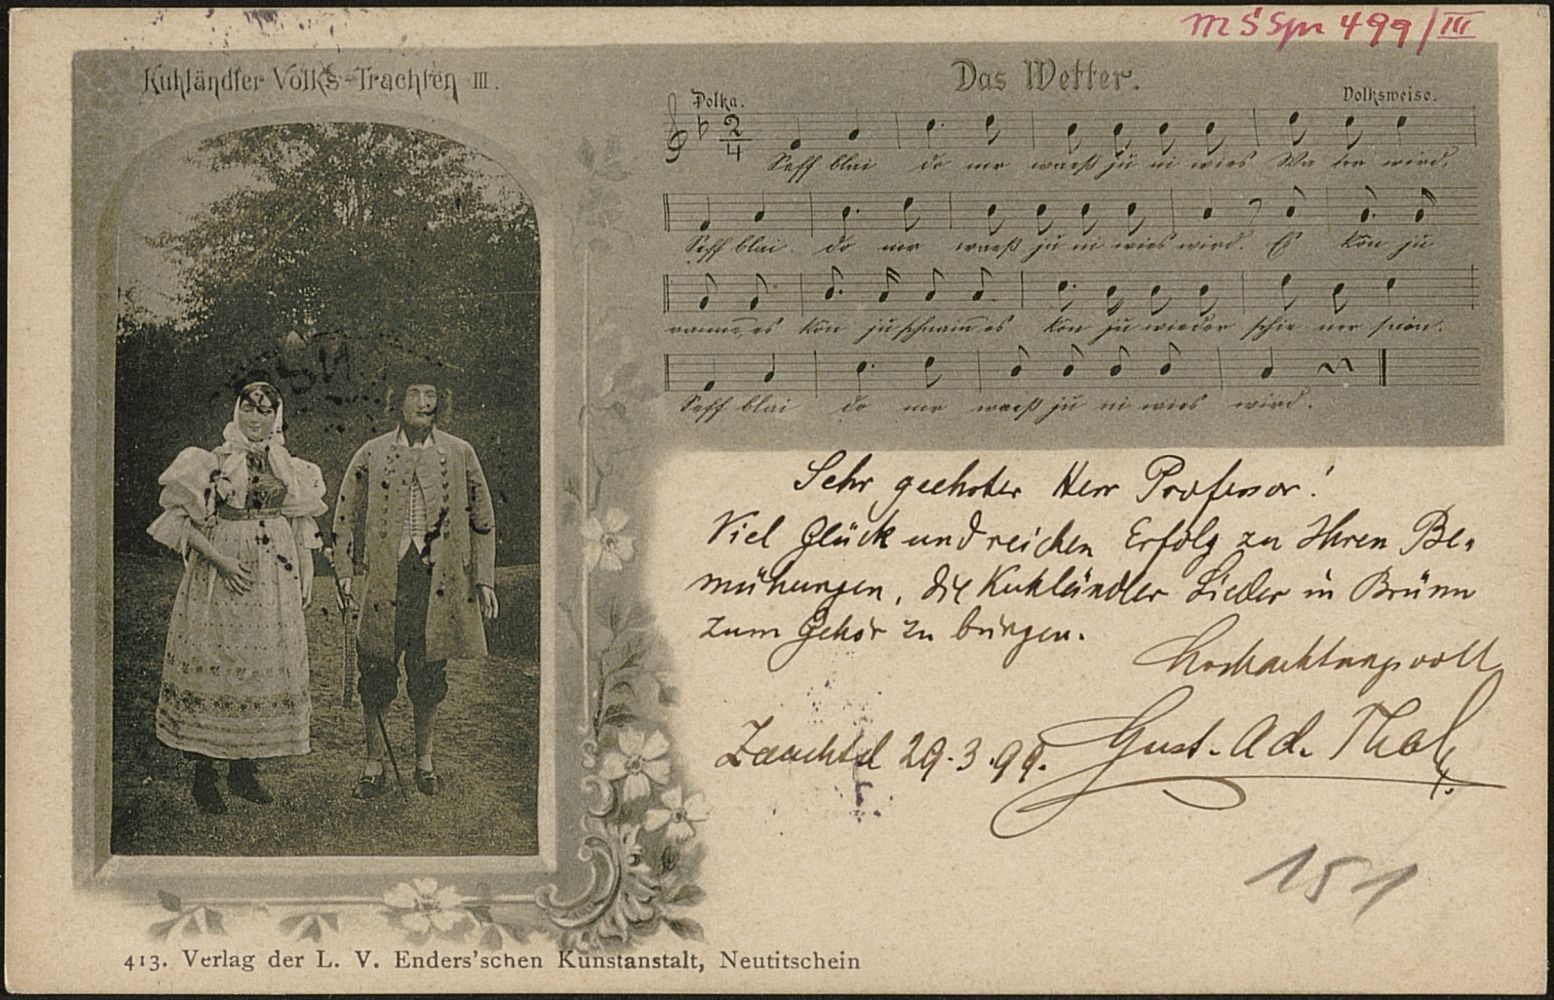 MS Spr 499/III
Kuhländler Volks-Trachten III.
Das Wetter.
Polka.
Volksweise.
2
4
Seff blai do mr waeß ju ni wies Wa ter wird,
Seff blai do mr waeß ju ni wies wird. Es kon ju
raane, es kon ju schnain es kon ju wieder schie
Seff blai do mr waeß ju ni wies wird.
Sehr geehrter Herr Professor!
Viel Glück und reichen Erfolg zu Ihren Be-
mühungen, die Kuhländler Lieder in Brünn
zum Gehör zu bringen.
Hochachtungsvoll
Zauchtl 29.3.99. Gust. Ad. Thal
151
413. Verlag der L. V. Enders'schen Kunstanstalt, Neutitschein